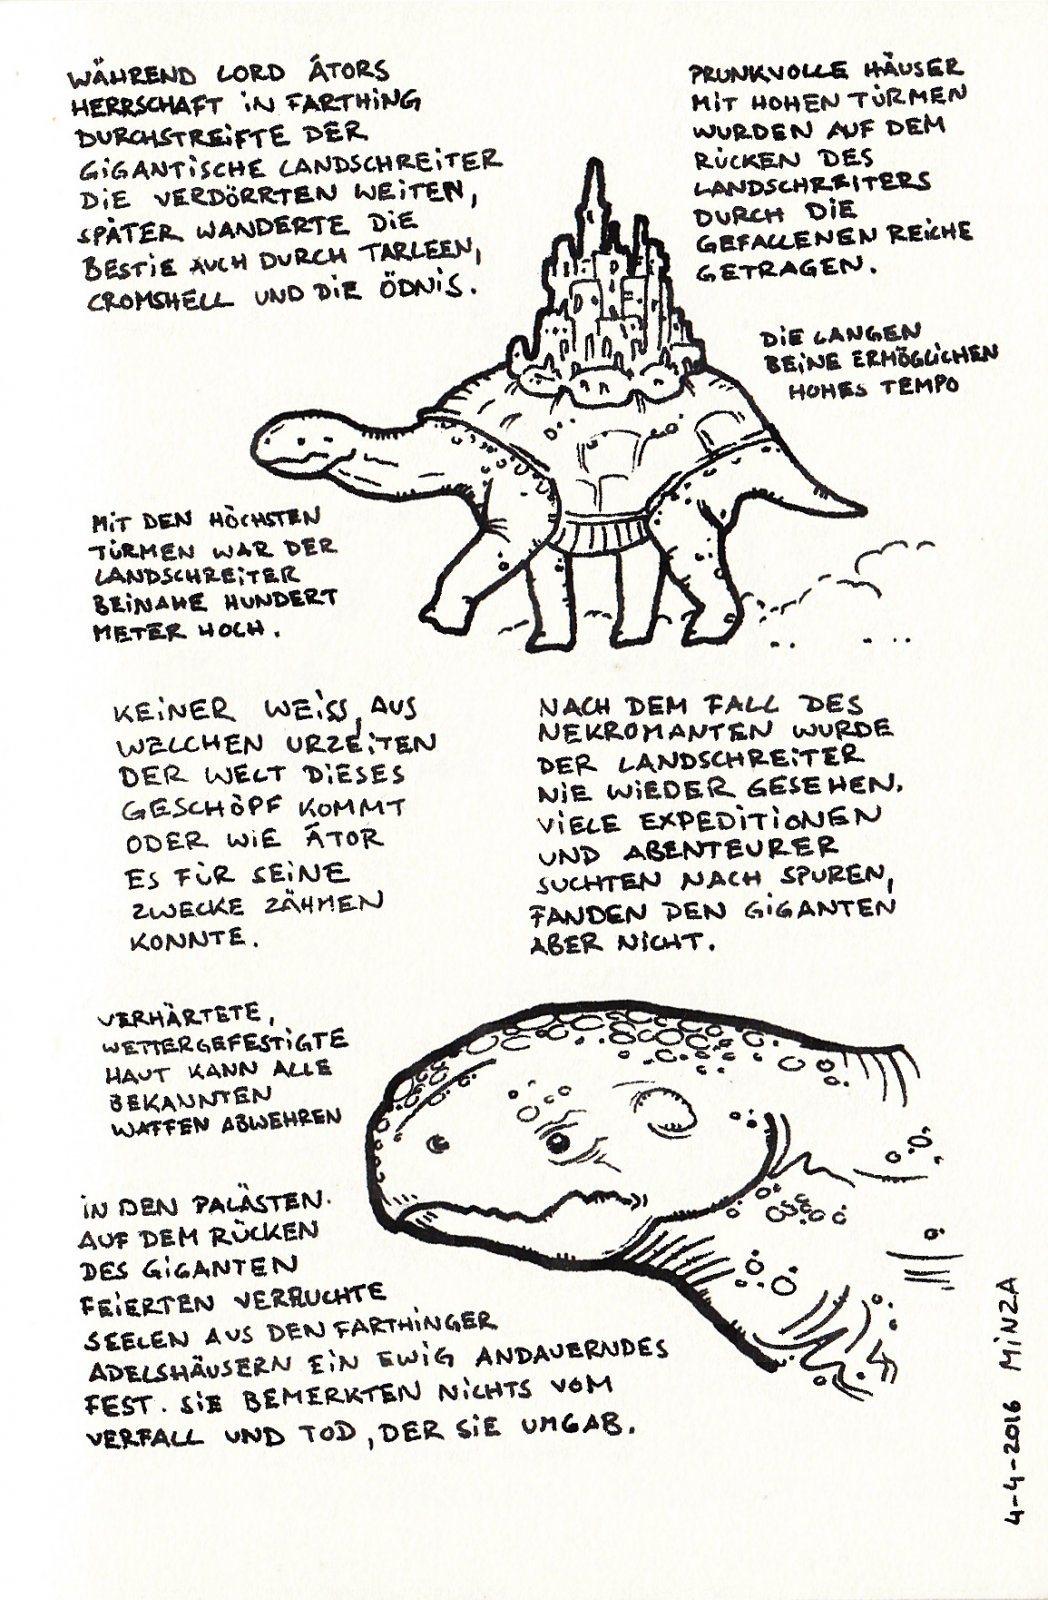 WÄHREND LORD ÁTORS
HERRSCHAFT IN FARTHING
DURCHSTREIFTE DER
GIGANTISCHE LANDSCHREITER
DIE VERDÖRRTEN WEITEN,
SPÄTER WANDERTE DIE
BESTIE AUCH DURCH TARLEEN,
CROMSHELL UND DIE ÖDNIS.
PRUNKVOLLE HÄUSER
MIT HOHEN TÜRMEN
WURDEN AUF DEM
RÜCKEN DES
LANDSCHREITERS
DURCH DIE
GEFALLENEN REICHE
GETRAGEN.
DIE LANGEN
BEINE ERMÖGLICHEN
HOHES TEMPO
MIT DEN HÖCHSTEN
TÜRMEN WAR DER
LANDSCHREITER
BEINAHE HUNDERT
METER HOCH.
KEINER WEISS, AUS
WELCHEN URZEITEN
DER WELT DIESES
GESCHÖPF KOMMT
ODER WIE ÁTOR
ES FÜR SEINE
ZWECKE ZÄHMEN
KONNTE.
NACH DEM FALL DES
NEKROMANTEN WURDE
DER LANDSCHREITER
NIE WIEDER GESEHEN.
VIELE EXPEDITIONEN
UND ABENTEURER
SUCHTEN NACH SPUREN,
FANDEN DEN GIGANTEN
ABER NICHT.
VERHÄRTETE,
WETTERGEFESTIGTE
HAUT KANN ALLE
BEKANNTEN
WAFFEN ABWEHREN
IN DEN PALÄSTEN
AUF DEM RÜCKEN
DES GIGANTEN
FEIERTEN VERRUCHTE
SEELEN AUS DEN FARTHINGER
ADELSHÄUSERN EIN EWIG ANDAUERNDES
FEST. SIE BEMERKTEN NICHTS VOM
VERFALL UND TOD, DER SIE UMGAB.
4-4-2016 MINZA